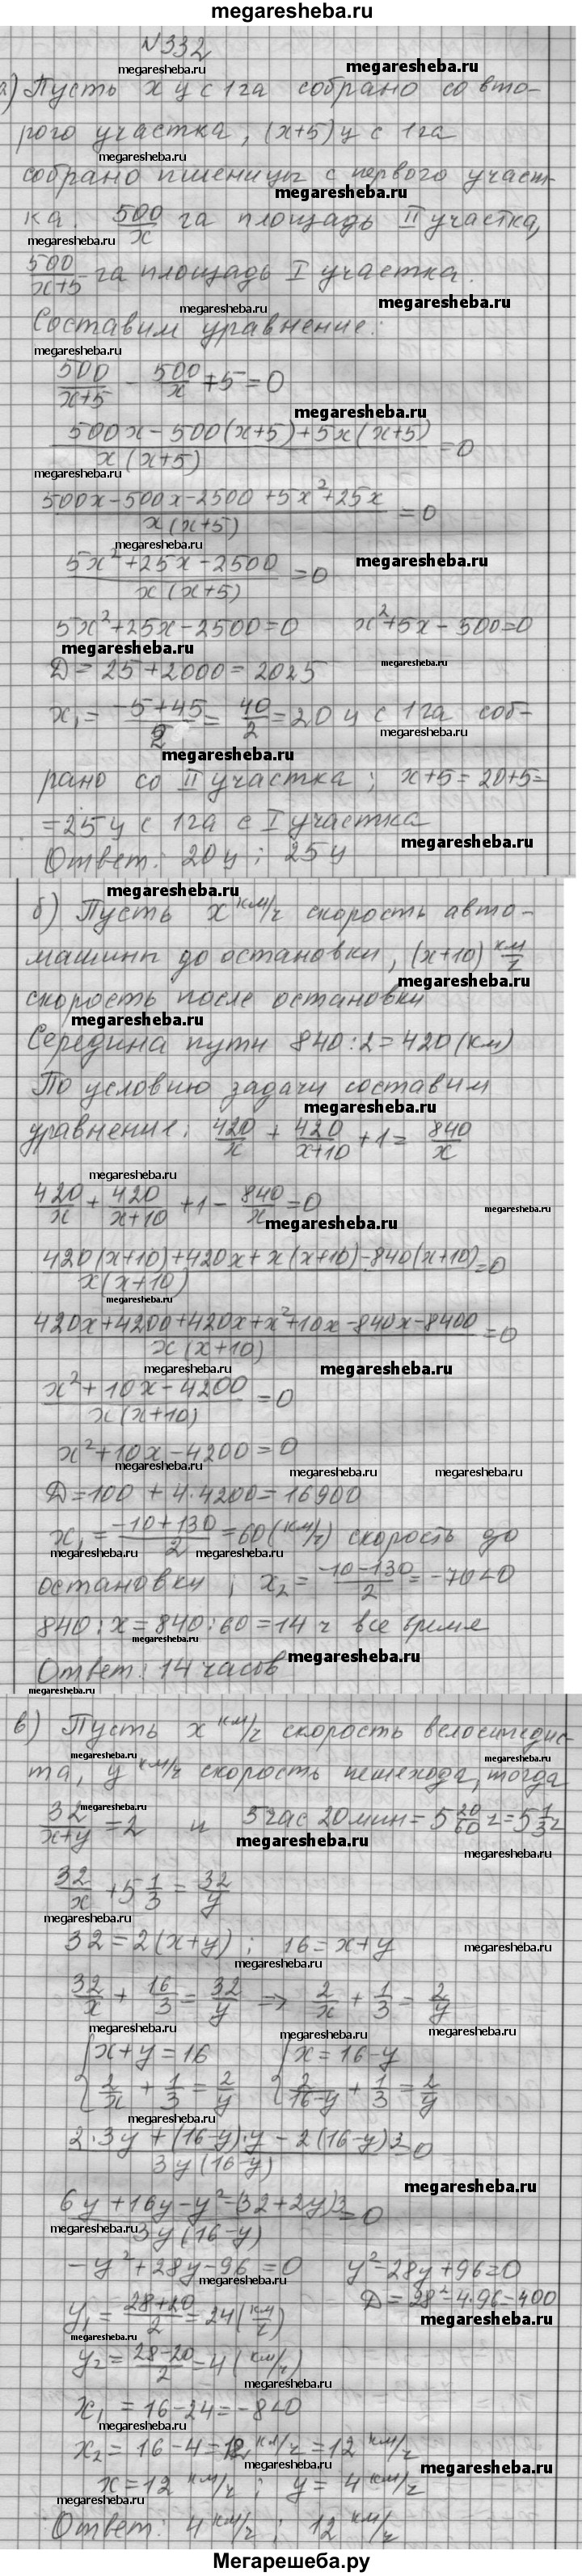 megaresheba.ru
№332
а) Пусть x ц с 1га собрано со вто-
рого участка, (x+5) ц с 1га
собрано пшеницы с первого участ-
ка 500/x га площадь II участка,
500/x+5 га площадь I участка.
Составим уравнение:
500/x+5 - 500/x +5=0
500x-500(x+5)+5x(x+5)/x(x+5) =0
500x-500x-2500+5x²+25x/x(x+5) =0
5x²+25x-2500/x(x+5) =0
5x²+25x-2500=0 x²+5x-500=0
D=25+2000=2025
x₁= -5+45/2 = 40/2 =20 ц с 1га соб-
рано со II участка; x+5=20+5=
=25 ц с 1га с I участка
Ответ: 20ц; 25ц
б) Пусть x км/ч скорость авто-
машины до остановки, (x+10) км/ч
скорость после остановки
Середина пути 840:2=420(км)
По условию задачи составим
уравнение: 420/x + 420/x+10 +1= 840/x
420/x + 420/x+10 +1- 840/x =0
420(x+10)+420x+x(x+10)-840(x+10)/x(x+10) =0
420x+4200+420x+x²+10x-840x-8400/x(x+10) =0
x²+10x-4200/x(x+10) =0
x²+10x-4200=0
D=100+4·4200=16900
x₁= -10+130/2 =60(км/ч) скорость до
остановки; x₂= -10-130/2 =-70<0
840:x=840:60=14 ч все время
Ответ: 14 часов
в) Пусть x км/ч скорость велосипедис-
та, y км/ч скорость пешехода, тогда
32/x+y =2 и 5час 20мин=5 20/60 ч=5 1/3 ч
32/x +5 1/3 = 32/y
32=2(x+y); 16=x+y
32/x + 16/3 = 32/y ⇒ 2/x + 1/3 = 2/y
{x+y=16 {x=16-y
{2/x + 1/3 = 2/y {2/16-y + 1/3 = 2/y
2·3y+(16-y)·y-2(16-y)3/3y(16-y) =0
6y+16y-y²-(32+2y)3/3y(16-y) =0
-y²+28y-96=0 y²-28y+96=0
D=28²-4·96=400
y₁= 28+20/2 =24(км/ч)
y₂= 28-20/2 =4(км/ч)
x₁=16-24=-8<0
x₂=16-4=12 км/ч =12 км/ч
x=12 км/ч; y=4 км/ч
Ответ: 4 км/ч; 12 км/ч
Мегарешеба.ру